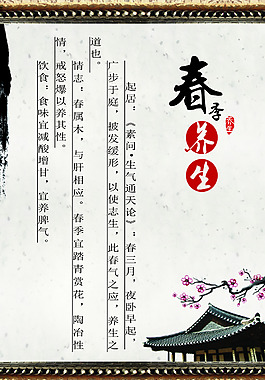 春季养生
起居：《素问·生气通天论》：春三月，夜卧早起，
广步于庭，披发缓形，以使志生，此春气之应，养生之
道也。
情志：春属木，与肝相应。春季宜踏青赏花，陶冶性
情，戒怒爆以养其性。
饮食：食味宜减酸增甘，宜养脾气。